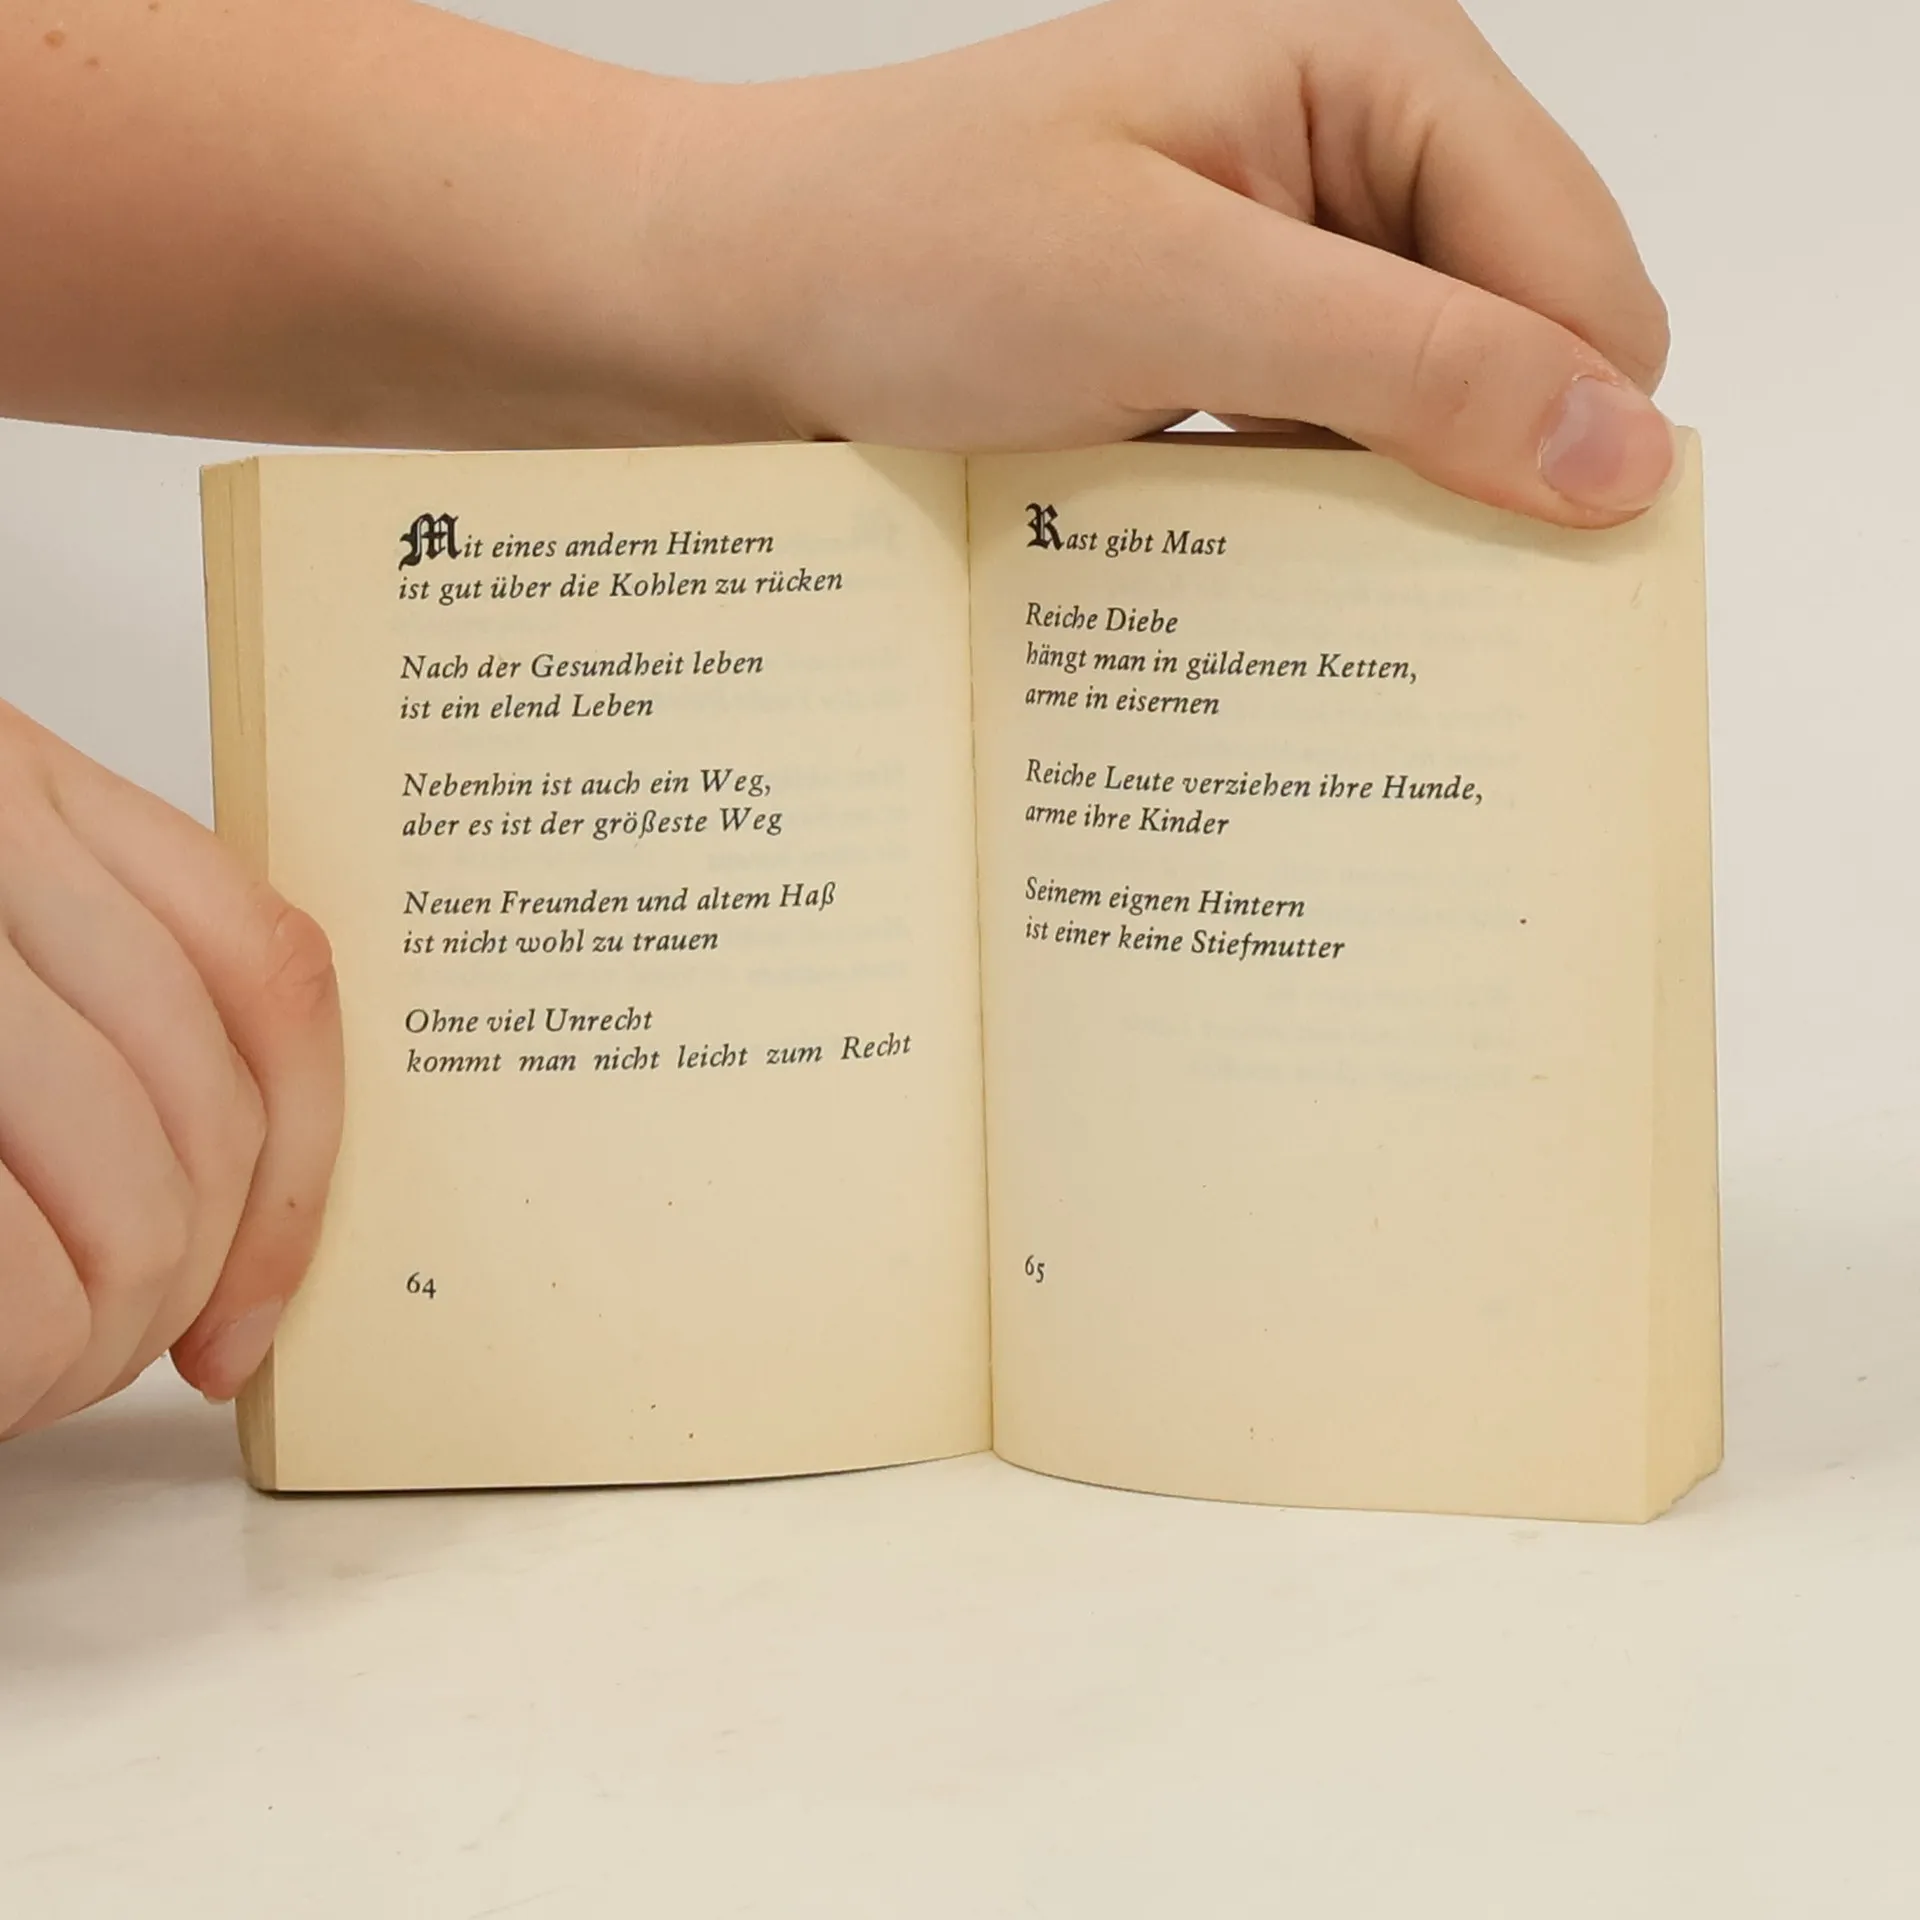 Mit eines andern Hintern
ist gut über die Kohlen zu rücken
Nach der Gesundheit leben
ist ein elend Leben
Nebenhin ist auch ein Weg,
aber es ist der größeste Weg
Neuen Freunden und altem Haß
ist nicht wohl zu trauen
Ohne viel Unrecht
kommt man nicht leicht zum Recht
64
Rast gibt Mast
Reiche Diebe
hängt man in güldenen Ketten,
arme in eisernen
Reiche Leute verziehen ihre Hunde,
arme ihre Kinder
Seinem eignen Hintern
ist einer keine Stiefmutter
65